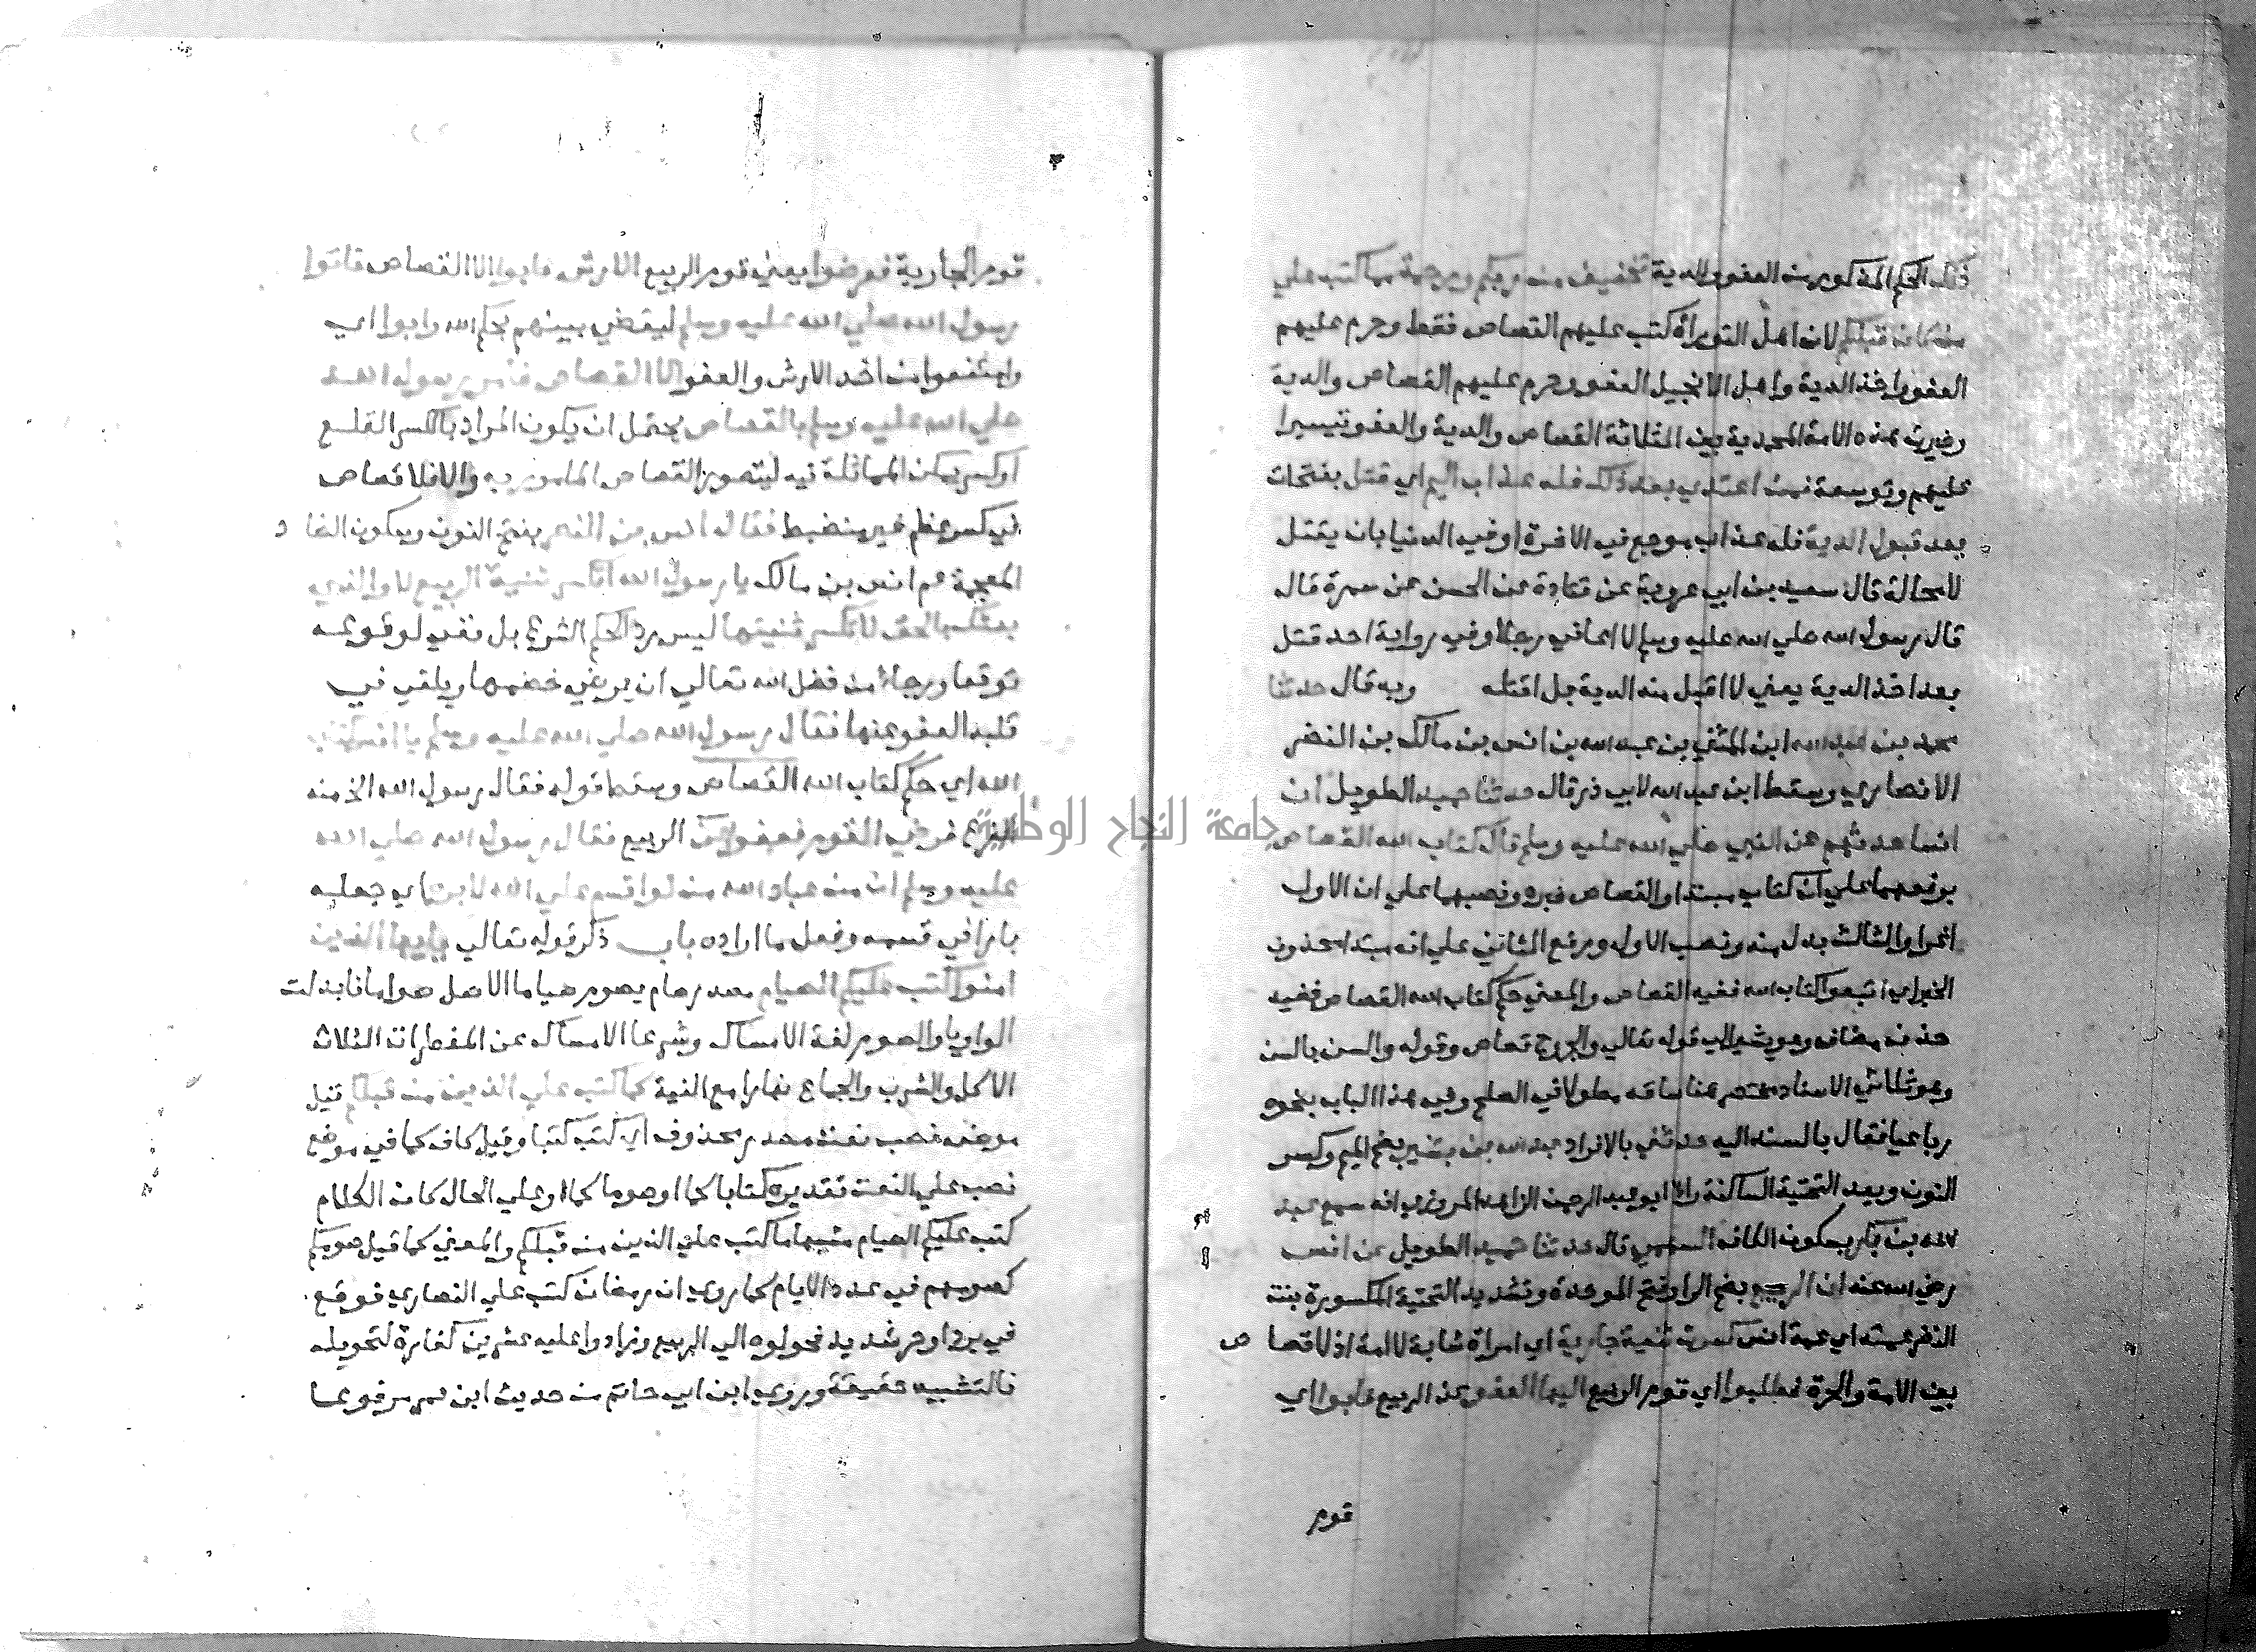 ذلك الحكم المذكور من العفو والدية تخفيف من ربكم ورحمة مما كتب علي
من كان قبلكم لان اهل التوراة كتب عليهم القصاص فقط وحرم عليهم
العفو واخذ الدية واهل الانجيل العفو وحرم عليهم القصاص والدية
وخيرت هذه الامة المحمدية بين الثلاثة القصاص والدية والعفو تيسيرا
عليهم وتوسعة فمن اعتدي بعد ذلك فله عذاب اليم اي قتل بفتحات
بعد قبول الدية فله عذاب موجع في الاخرة او في الدنيا بان يقتل
لامحالة قال سعيد بن ابي عروبة عن قتادة عن الحسن عن سمرة قال
قال رسول الله صلي الله عليه وسلم لا اعافي رجلا وفي رواية احد قتل
بعد اخذ الدية يعني لا اقبل منه الدية بل اقتله وبه قال حدثنا
محمد بن عبد الله ابن المثني بن عبد الله بن انس بن مالك بن النضر
الانصاري وسقط ابن عبد الله لابي ذر قال حدثنا حميد الطويل ان
انسا حدثهم عن النبي صلي الله عليه وسلم قال كتاب الله القصاص
برفعهما علي ان كتاب مبتدا والقصاص خبره ونصبهما علي ان الاول
اغرا والثالث بدل منه ونصب الاول ورفع الثاني علي انه مبتدا محذوف
الخبر اي اتبعوا كتاب الله ففيه القصاص والمعني حكم كتاب الله القصاص ففيه
حذف مضاف وهو يشير الي قوله تعالي والجروح قصاص وقوله والسن بالسن
وهو ثلاثي الاسناد مختصر هنا ساقه مطولا في الصلح وفي هذا الباب بنحوه
رباعيا فقال بالسند اليه حدثني بالافراد عبد الله بن منير بضم الميم وكسر
النون وبعد التحتية الساكنة را ابو عبد الرحمن الزاهد المروزي انه سمع عبد
الله بن بكر بسكون الكاف السهمي قال حدثنا حميد الطويل عن انس
رضي الله عنه ان الربيع بضم الرا وفتح الموحدة وتشديد التحتية المكسورة بنت
النضر عمته اي عمة انس كسرت ثنية جارية اي امراة شابة لا امة اذ لا قصاص
بين الامة والحرة فطلبوا اي قوم الربيع اليها العفو عن الربيع فابوا اي
قوم
قوم الجارية فعرضوا يعني قوم الربيع الارش فابوا الا القصاص فاتوا
رسول الله صلي الله عليه وسلم ليقضي بينهم بحكم الله وابوا اي
وامتنعوا من اخذ الارش والعفو الا القصاص فامر رسول الله
صلي الله عليه وسلم بالقصاص يحتمل ان يكون المراد بالكسر القلع
او كسر يمكن المماثلة فيه ليتصور القصاص المامور به والا فلا قصاص
في كسر عظم غير منضبط فقال انس بن النضر بفتح النون وسكون الضاد
المعجمة عم انس بن مالك يا رسول الله اتكسر ثنية الربيع لا والذي
بعثك بالحق لا تكسر ثنيتها ليس رد الحكم الشرع بل نفي لوقوعه
توقعا ورجاء من فضل الله تعالي ان يرضي خصمها ويلقي في
قلبه العفو عنها فقال رسول الله صلي الله عليه وسلم يا انس كتاب
الله اي حكم كتاب الله القصاص وسقط قوله فقال رسول الله الخ من
الفرع فرضي القوم فعفوا عن الربيع فقال رسول الله صلي الله
عليه وسلم ان من عباد الله من لو اقسم علي الله لابره اي جعله
بارا في قسمه وفعل ما اراده باب ذكر قوله تعالي يايها الذين
امنوا كتب عليكم الصيام مصدر صام يصوم صياما الاصل صواما فابدلت
الواو يا والصوم لغة الامساك وشرعا الامساك عن المفطرات الثلاث
الاكل والشرب والجماع نهارا مع النية كما كتب علي الذين من قبلكم قيل
موضعه نصب نعت مصدر محذوف اي كتب كتبا وقيل كاف كما في موضع
نصب علي النعت تقديره كتابا كما او صوما كما او علي الحال كان الكلام
كتب عليكم الصيام مشبها ما كتب علي الذين من قبلكم والمعني كما قيل صومكم
كصومهم في عدد الايام كما روي ان رمضان كتب علي النصاري فوقع
في برد او حر شديد فحولوه الي الربيع وزادوا عليه عشرين كفارة لتحويله
فالتشبيه حقيقة وروي ابن ابي حاتم من حديث ابن عمر مرفوعا
جامعة النجاح الوطنية